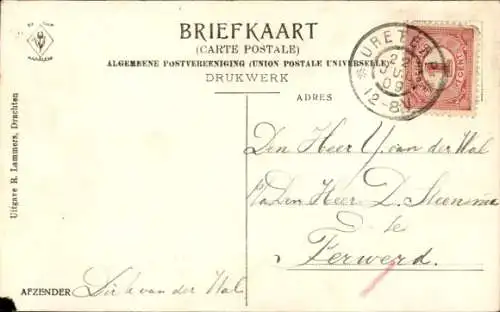 BRIEFKAART
(CARTE POSTALE)
ALGEMEENE POSTVEREENIGING (UNION POSTALE UNIVERSELLE)
DRUKWERK
ADRES
URETERP
12-8V
Den Heer Y. van der Wal
p/a Den Heer D. Steensma
te
Ferwerd.
AFZENDER Dirk van der Wal
Uitgave R. Lammers, Drachten
HAARLEM